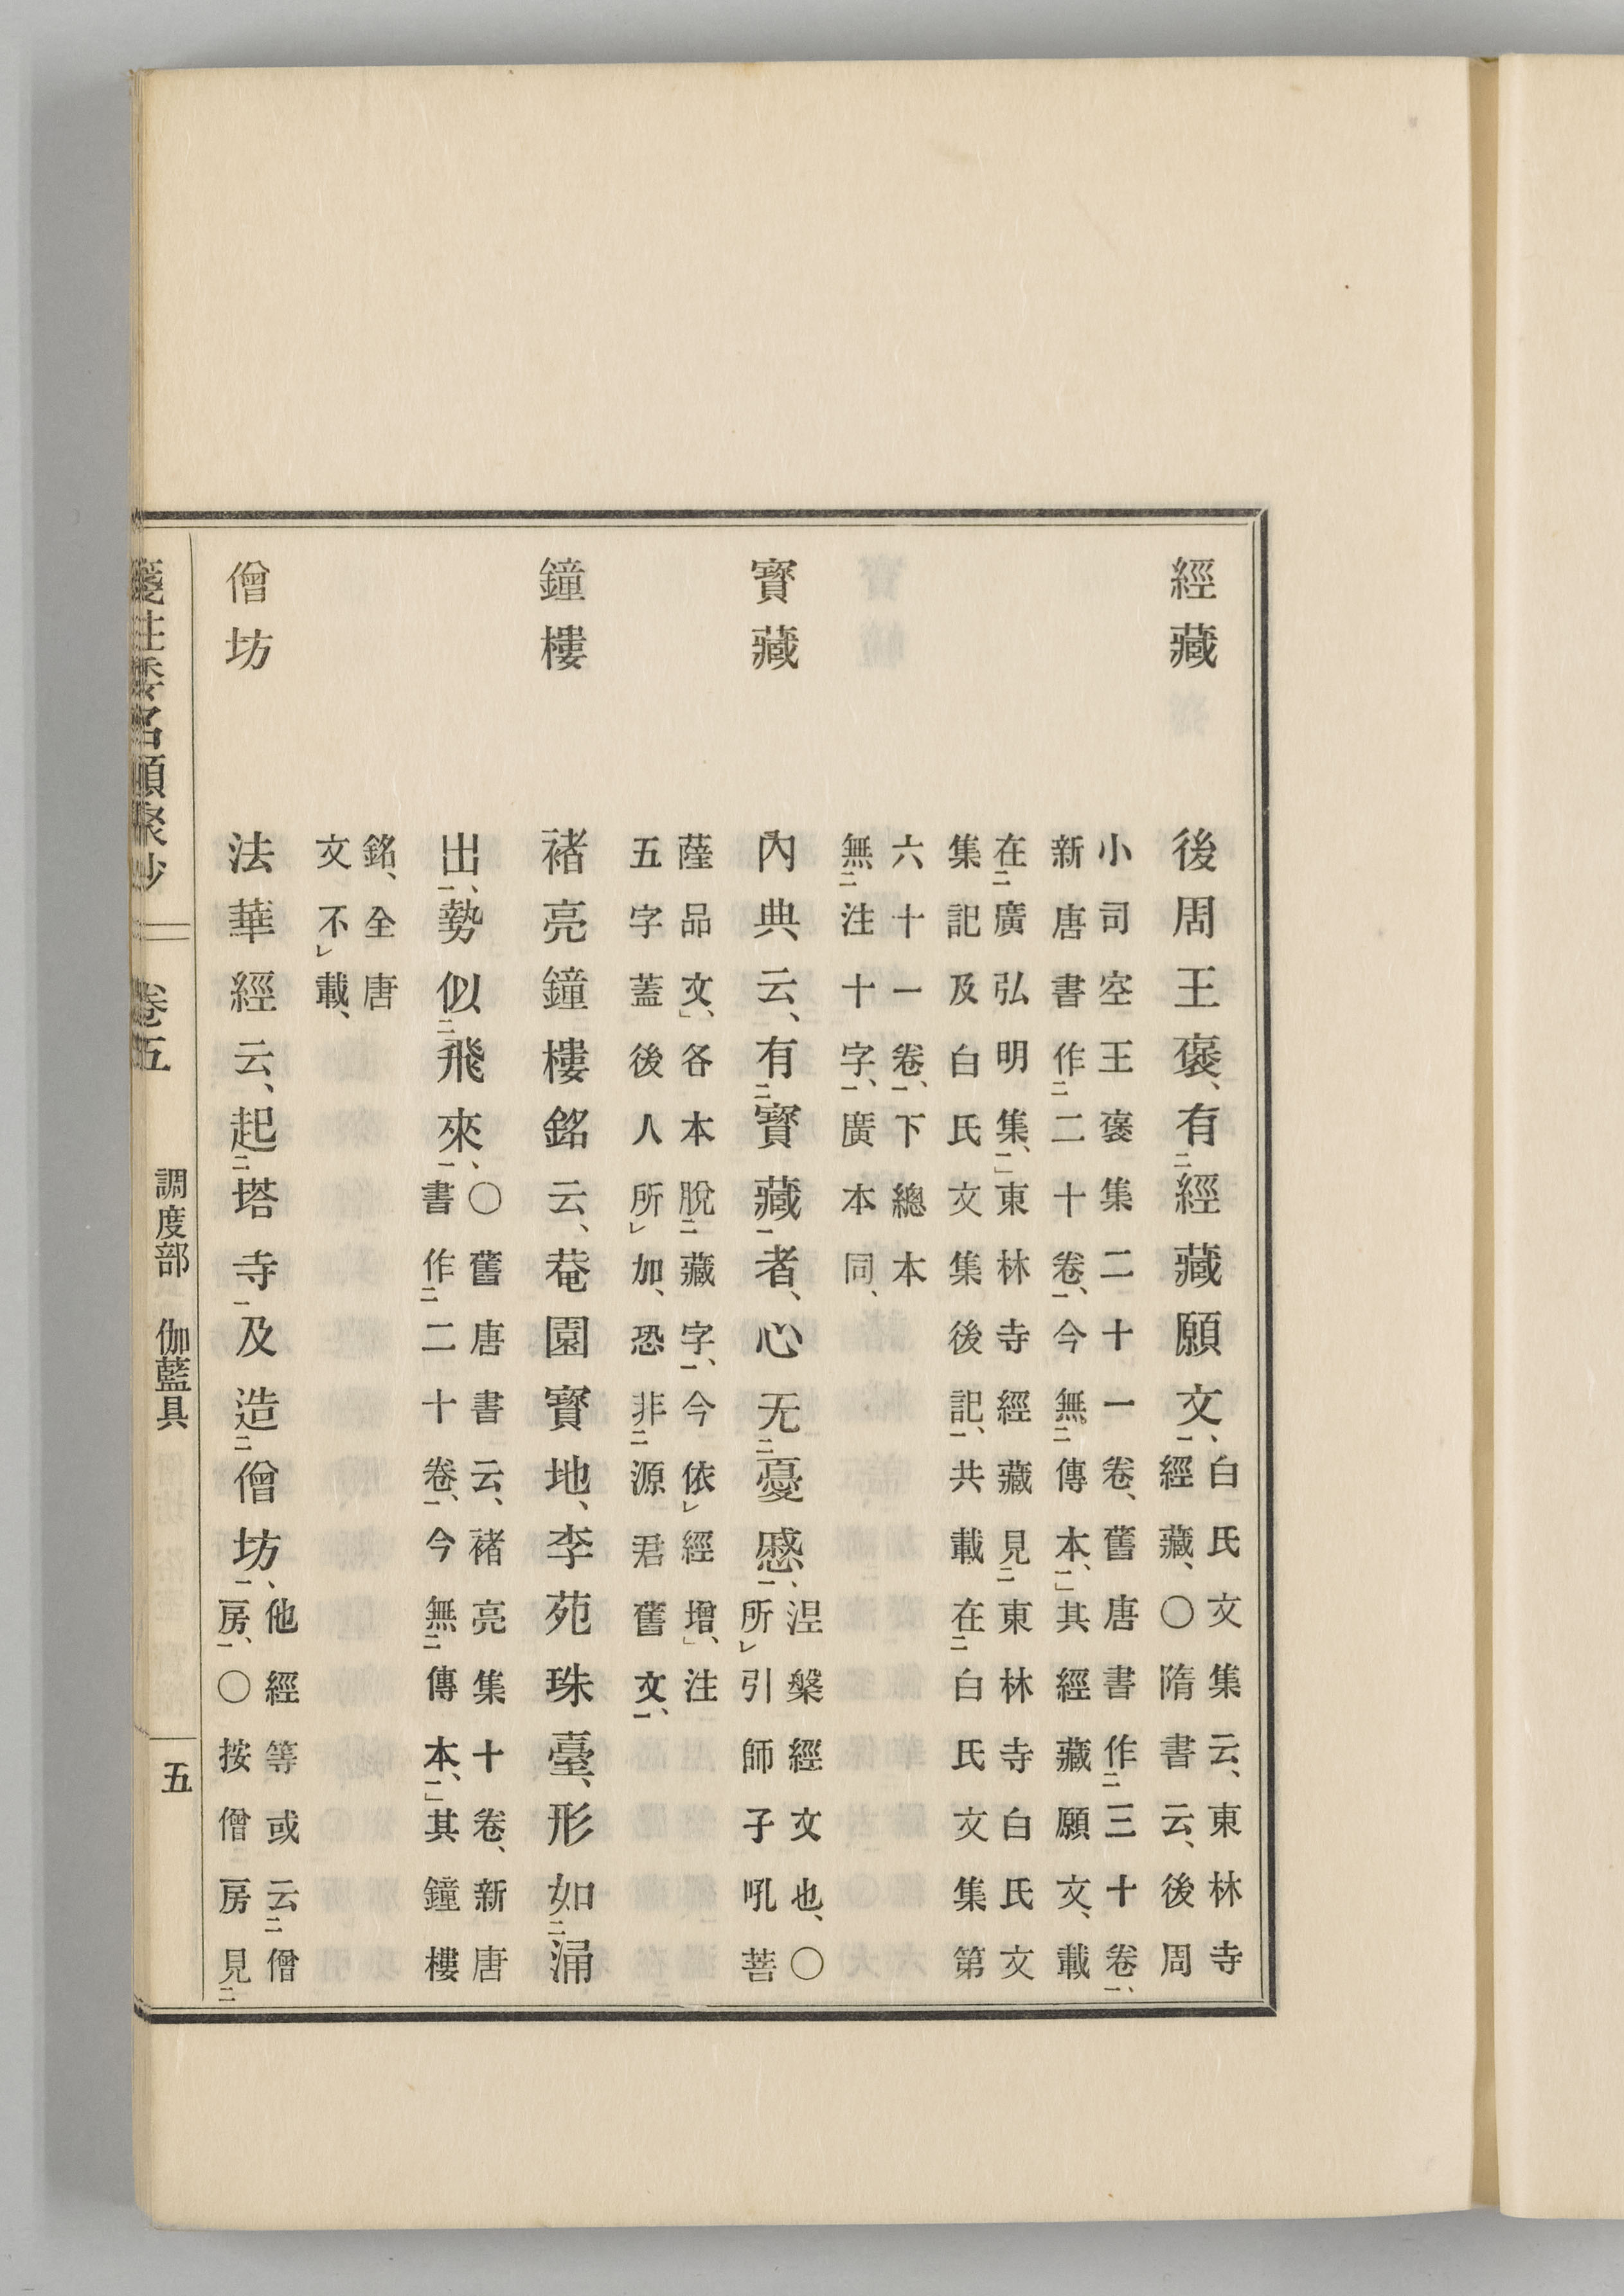 經藏　後周王褒、有經藏願文、
白氏文集云、東林寺
經藏、〇隋書云、後周
小司空王褒集二十一卷、舊唐書作三十卷、
新唐書作二十卷、今無傳本、其經藏願文、載
在廣弘明集、東林寺經藏見東林寺白氏文
集記及白氏文集後記、共載在白氏文集第
六十一卷、下總本
無注十字、廣本同、
寶藏　內典云、有寶藏者、心无憂慼、
涅槃經文也、〇
所引師子吼菩
薩品文、各本脫藏字、今依經增、注
五字蓋後人所加、恐非源君舊文、
鐘樓　褚亮鐘樓銘云、菴園寶地、李苑珠臺、形如涌
出、勢似飛來、
〇舊唐書云、褚亮集十卷、新唐
書作二十卷、今無傳本、其鐘樓
銘、全唐
文不載、
僧坊　法華經云、起塔寺及造僧坊、
他經等或云僧
房、〇按僧房見
箋注倭名類聚抄　卷五　調度部　伽藍具　五